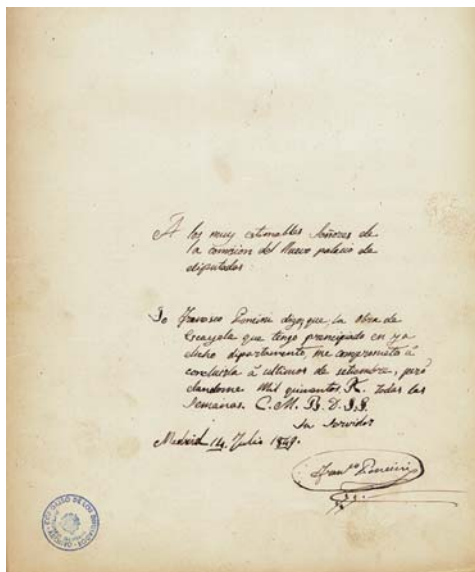 A los muy estimables Señores de
la comision del Nuevo palacio de
diputados
Yo Francisco Poncini digo, que, la obra de
que tengo principiado en ya
dicho dipartamento, me comprometo á
concluirla á ultimos de setiembre, peró
dandome Mil quinantos, R. todas las
Semanas. C. M. B. D. S. S.
Su Servidor
Madrid 14 Julio 1849.
Fran.co Poncini
CONGRESO DE LOS DIPUTADOS